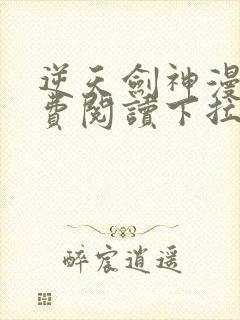 逆天劍神漫
費閱讀下拉
醉宸逍遥